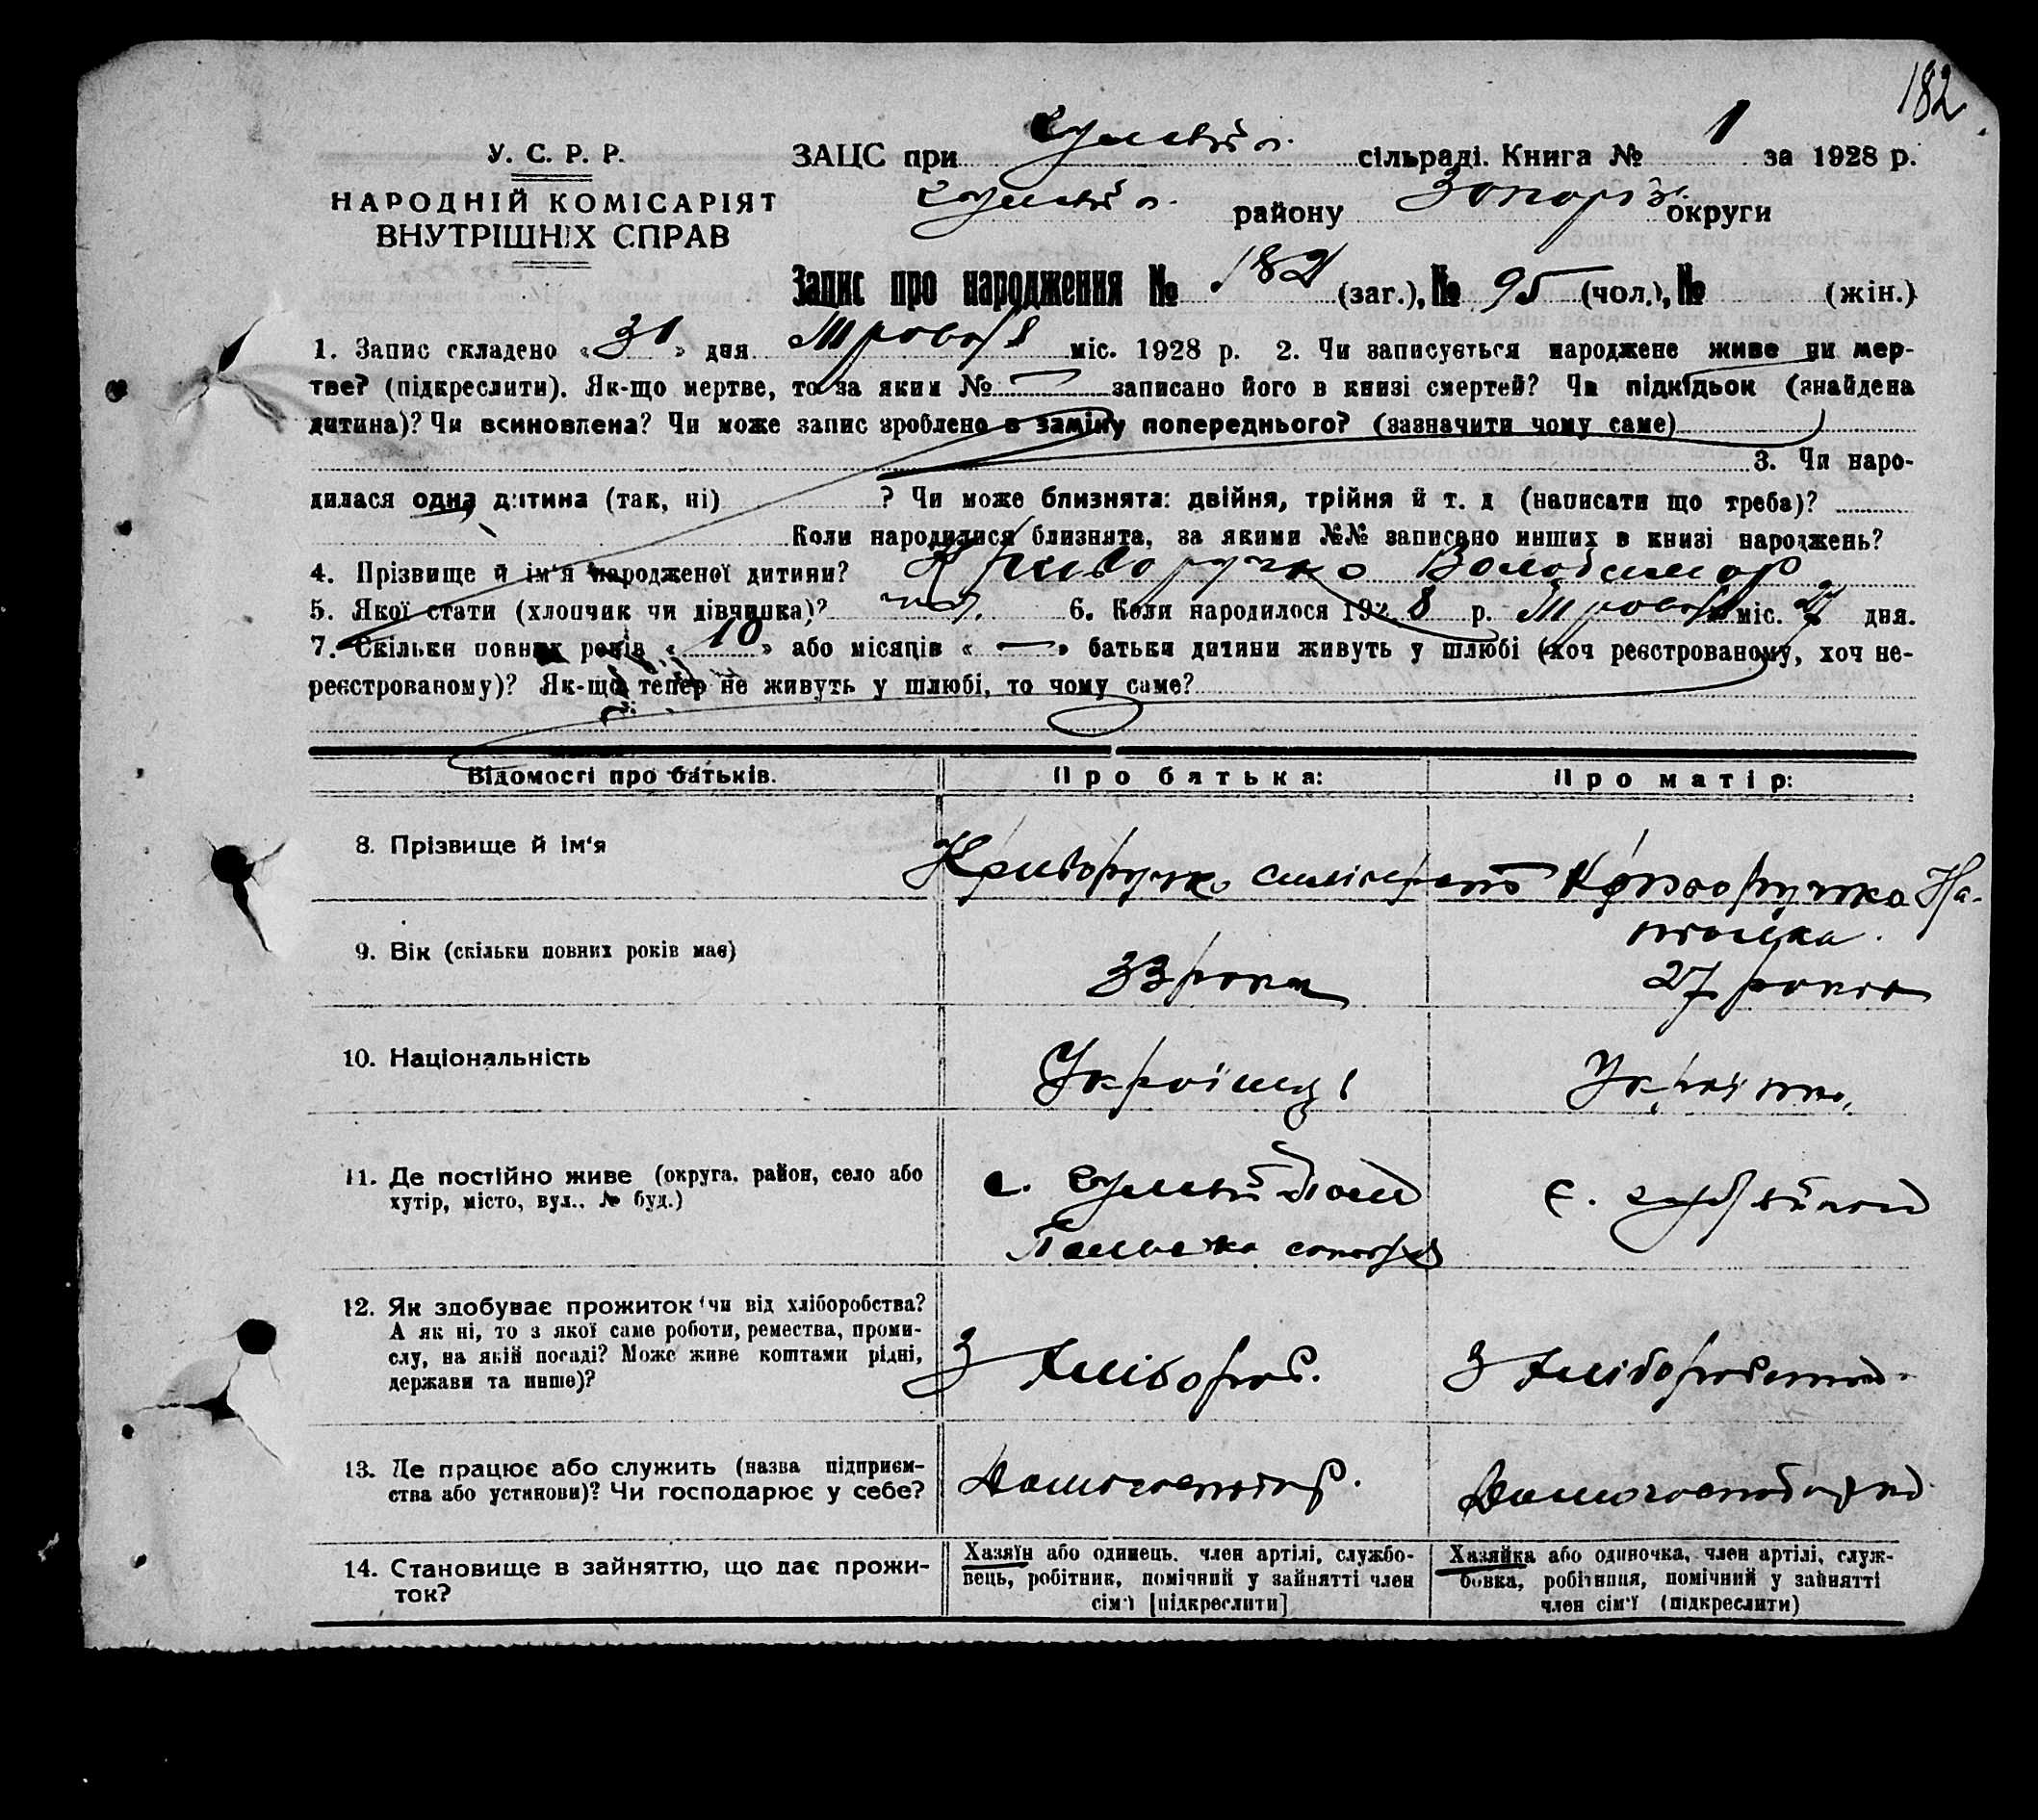 182
У. С. Р. Р.
НАРОДНІЙ КОМІСАРІЯТ
ВНУТРІШНІХ СПРАВ
ЗАЦС при сільраді. Книга № 1 за 1928 р.
району Запоріз. округи
Запис про народження № 182 (заг.), № 95 (чол.), № (жін.)
1. Запис складено «31» дня Травня міс. 1928 р. 2. Чи записується народжене живе чи мер-
тве? (підкреслити). Як-що мертве, то за яким № — записано його в книзі смертей? Чи підкідьок (знайдена
дитина)? Чи всиновлена? Чи може запис зроблено в заміну попереднього? (зазначити чому саме)
3. Чи наро-
дилася одна дитина (так, ні) ? Чи може близнята: двійня, трійня й т. д (написати що треба)?
Коли народилися близнята, за якими №№ записано инших в книзі народжень?
4. Прізвище й ім'я народженої дитини? Криворучко Володимир
5. Якої стати (хлопчик чи дівчинка)? 6. Коли народилося 1928 р. Травня міс. дня.
7. Скільки повних років «10» або місяців «—» батьки дитини живуть у шлюбі (хоч реєстрованому, хоч не-
реєстрованому)? Як-що тепер не живуть у шлюбі, то чому саме?
Відомості про батьків.
Про батька:
Про матір:
8. Прізвище й ім'я
Криворучко
Криворучка На-
талка.
9. Вік (скільки повних років має)
33 роки
27 років
10. Національність
Українць
Українка
11. Де постійно живе (округа, район, село або
хутір, місто, вул., № буд.)
с.
с.
12. Як здобуває прожиток (чи від хліборобства?
А як ні, то з якої саме роботи, ремества, проми-
слу, на якій посаді? Може живе коштами рідні,
держави та инше)?
З хлібороб.
З хліборобства.
13. Де працює або служить (назва підприєм-
ства або установи)? Чи господарює у себе?
Домогосподар.
Домогосподарка.
14. Становище в зайняттю, що дає прожи-
ток?
Хазяїн або одинець, член артілі, службо-
вець, робітник, помічний у зайнятті член
сім'ї [підкреслити]
Хазяйка або одиночка, член артілі, служ-
бовка, робітниця, помічний у зайнятті
член сім'ї (підкреслити)